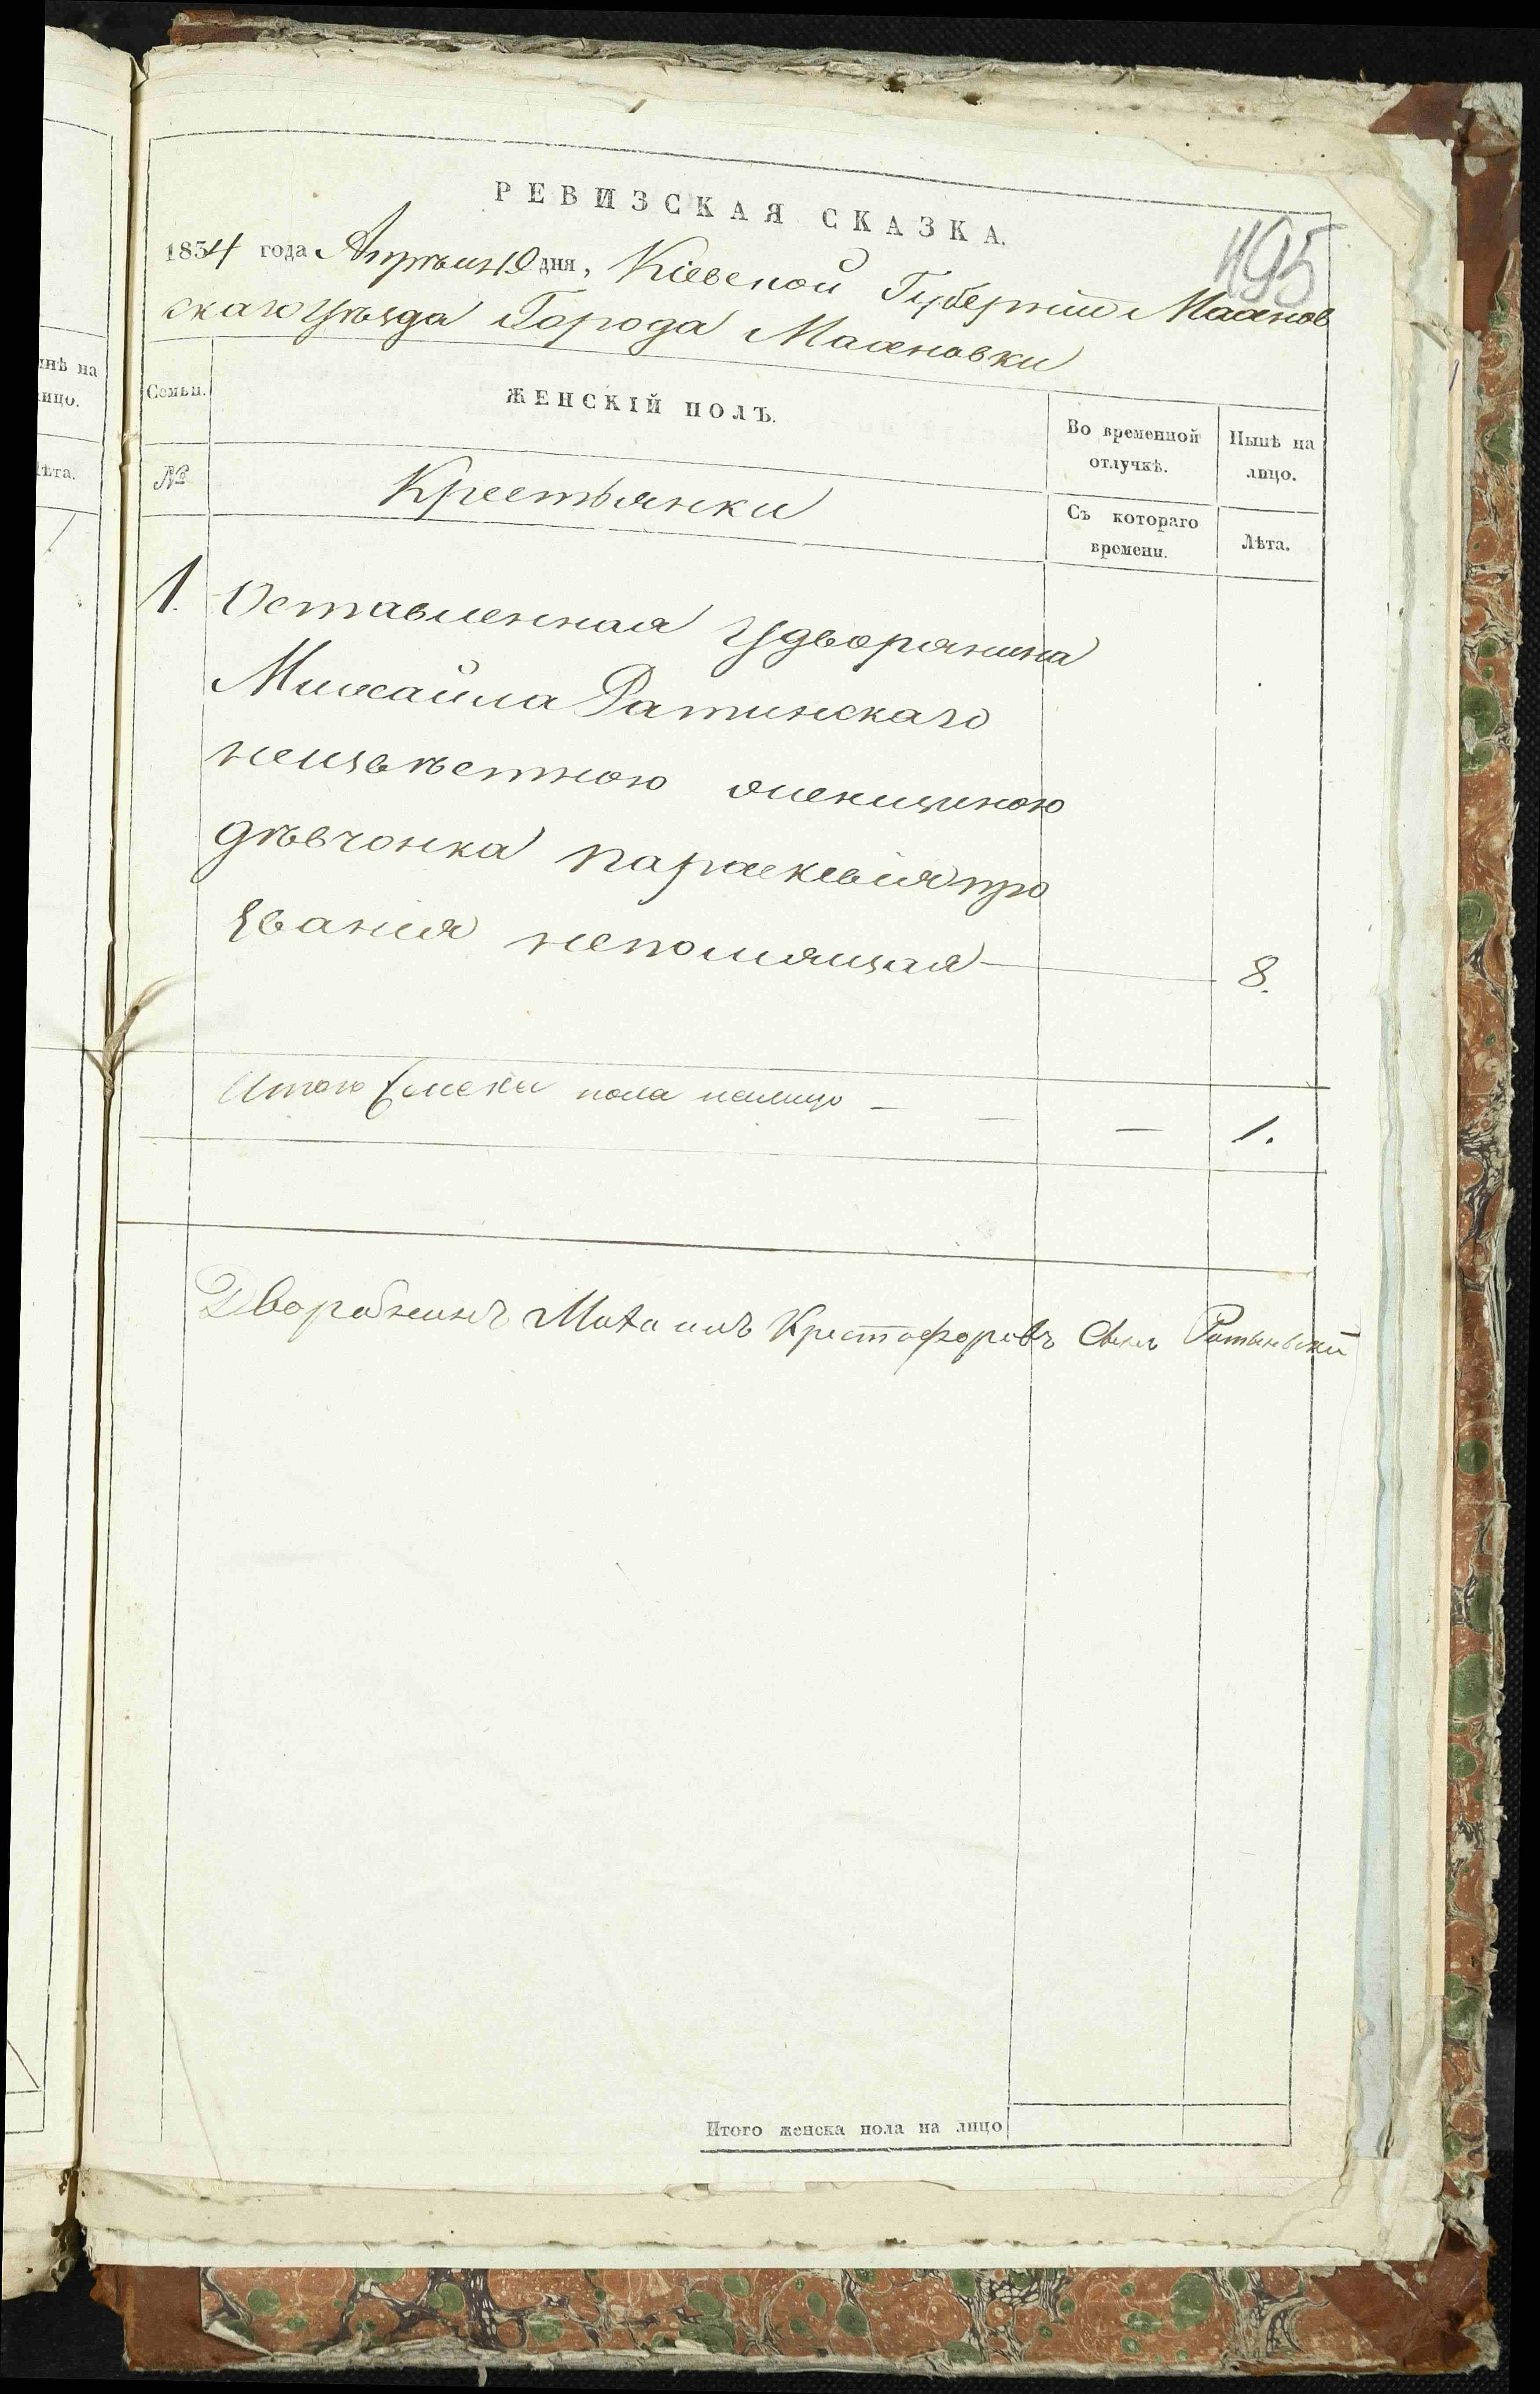 инѣ на
ицо.
ѣта.
РЕВИЗСКАЯ СКАЗКА.
495
1834 года Апрѣля 19 дня, Кіевской Губерніи Махнов
скаго уѣзда Города Махновки
Семьи.
ЖЕНСКІЙ ПОЛЪ.
Во временной отлучкѣ.
Нынѣ на лицо.
№
Крестьянки
Съ котораго времени.
Лѣта.
1. Оставленная у дворянина
Михайла Ратинскаго
неизвѣстною женщиною
дѣвчонка параскевія про
званія непомнящая 8.
Итого женска пола налицо — — — 1.
Дворянинъ Михаилъ Кристофоровъ Сынъ Ратынский
Итого женска пола на лицо